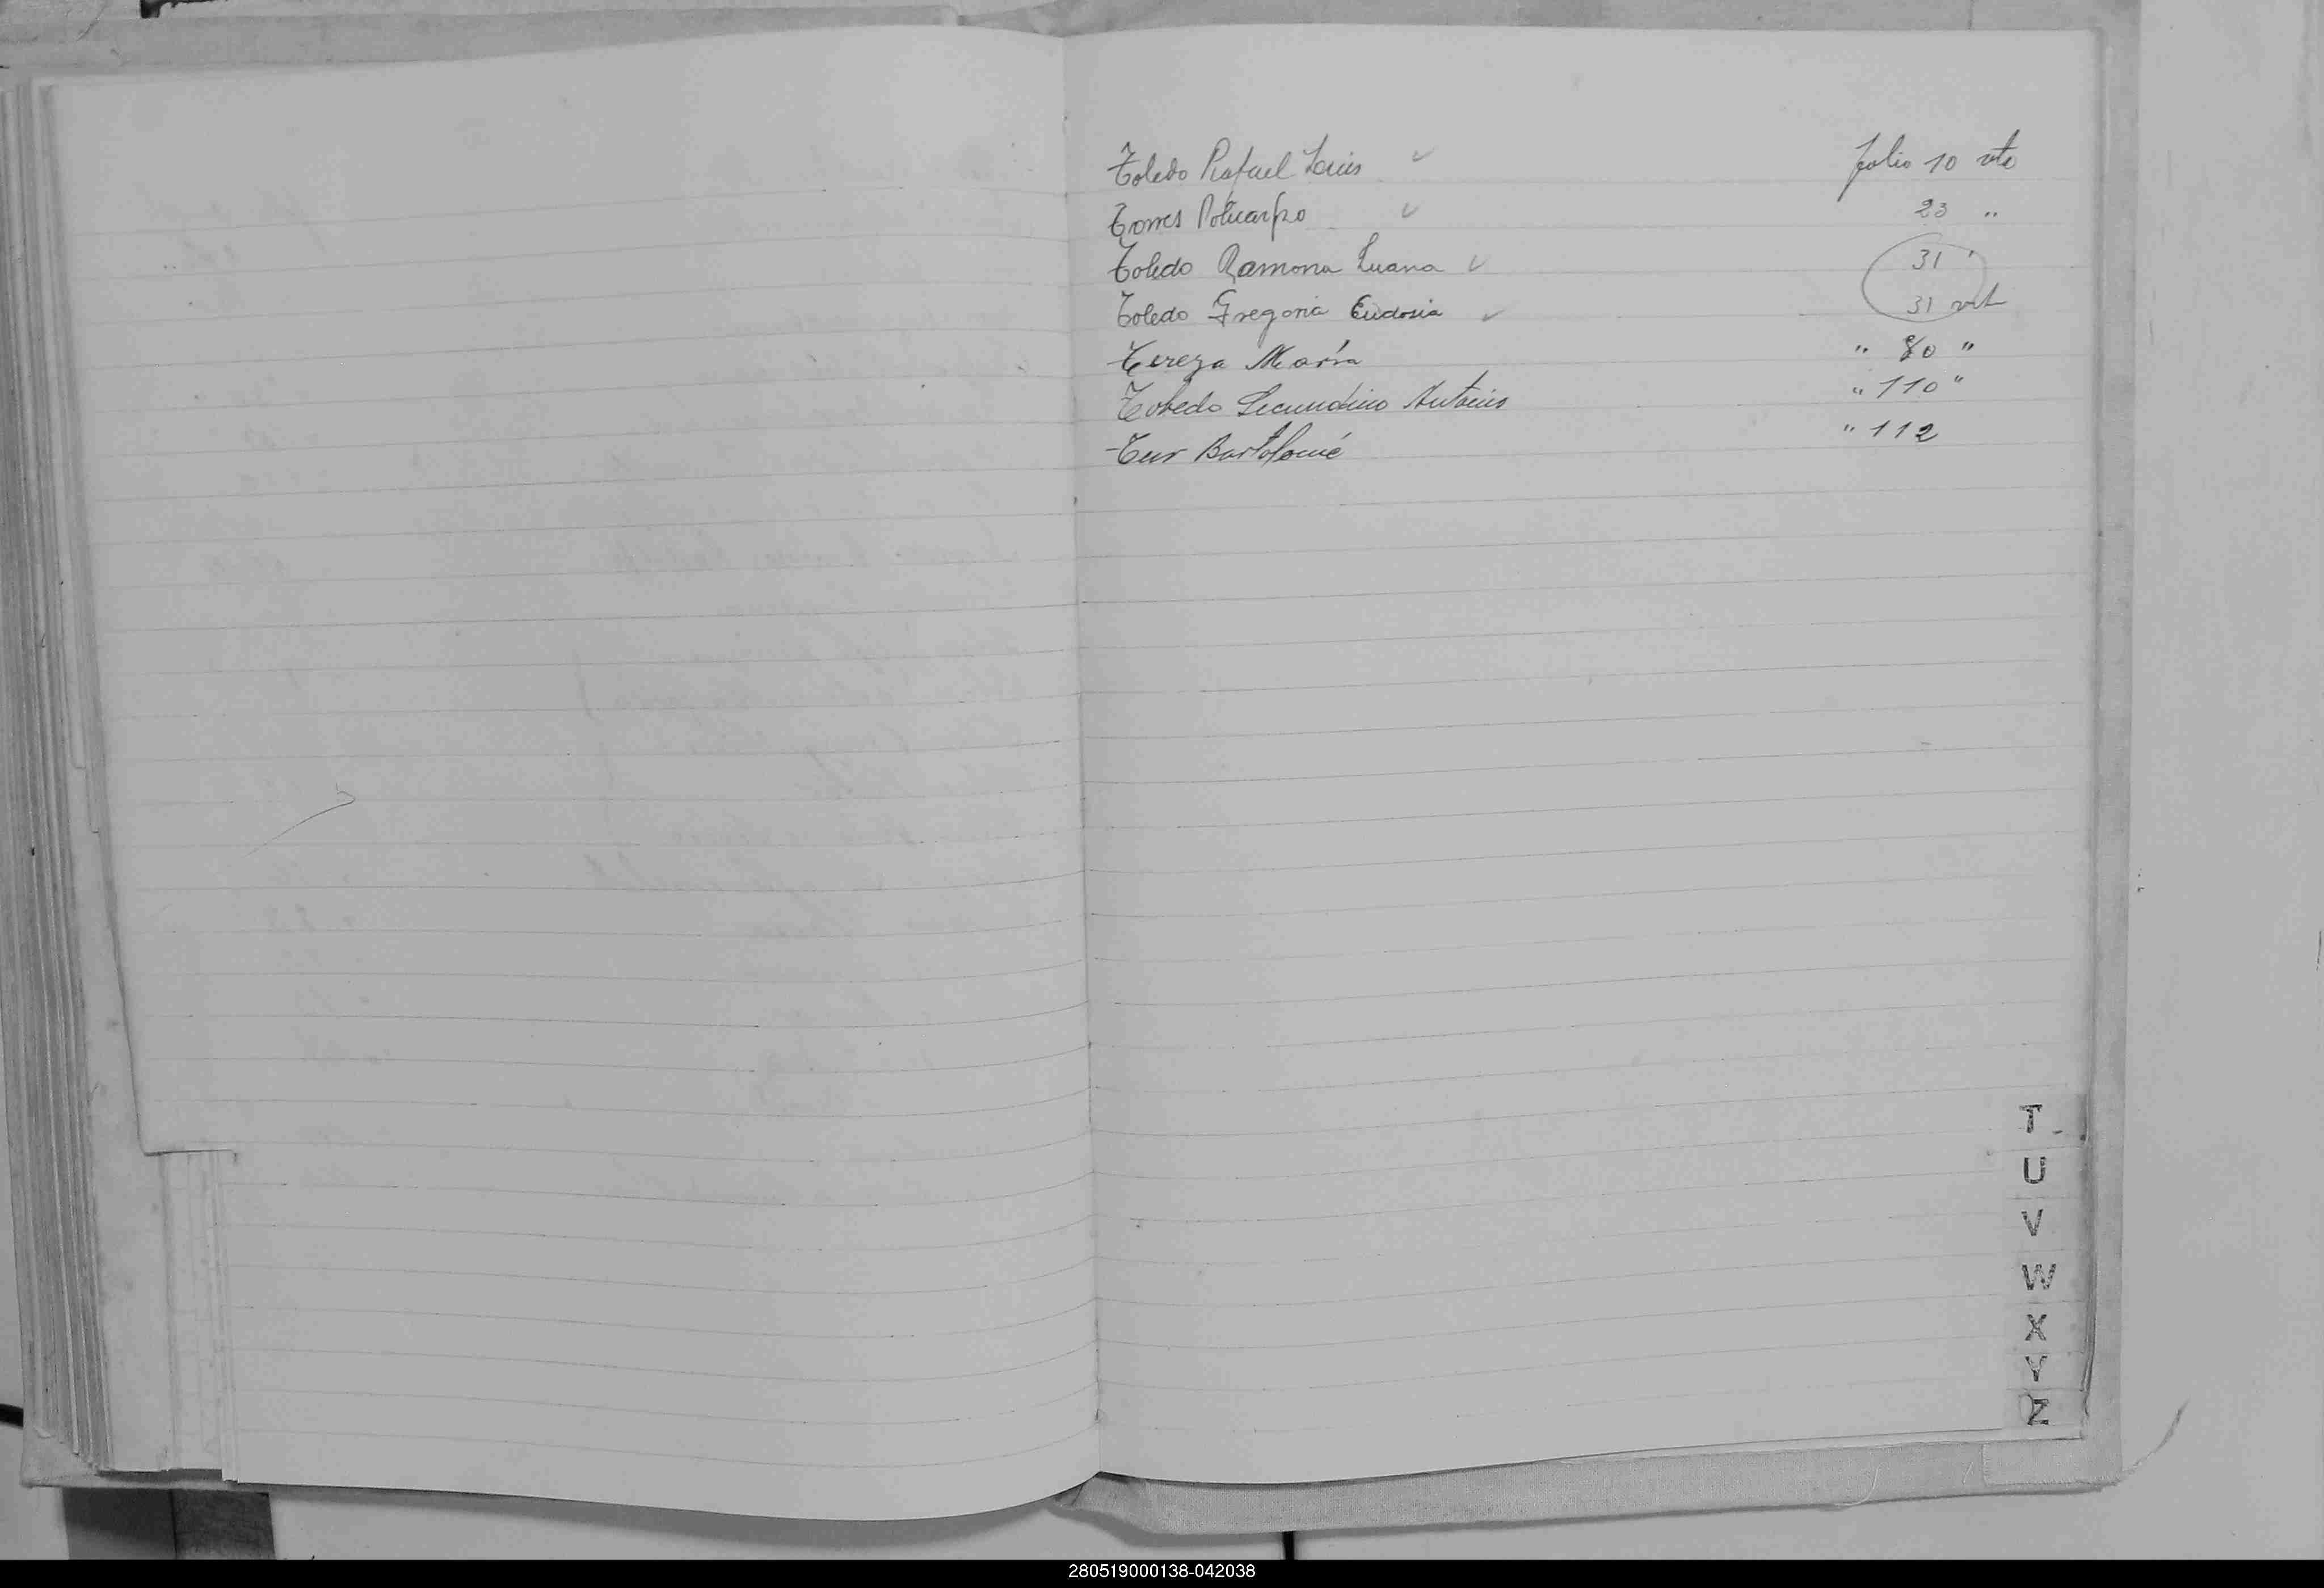 Toledo Rafael Luis ✓ folio 10 vto
Torres Policarpo ✓ 23 "
Toledo Ramona Luana ✓ 31 '
Toledo Gregoria Eudosia ✓ 31 vt
Tereza María " 80 "
Toledo Secundino Antonio " 110 "
Tur Bartolomé " 112
T
U
V
W
X
Y
Z
280519000138-042038